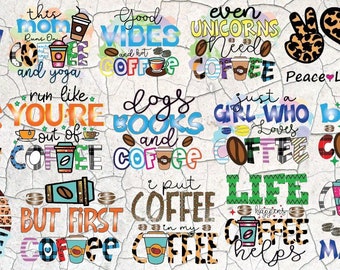 this
mom
Runs On
COFFEE
and yoga
Good
VIBES
and hot
COFFEE
even
UNICORNS
Need
COFFEE
Peace L
run like
YOU'RE
out of
COFFEE
dogs
BOOKS
and
COFFEE
just a
GIRL WHO
Loves
COFFEE
BUT FIRST
COFFEE
i put
COFFEE
in my
COFFEE
LIFE
happens
COFFEE
helps